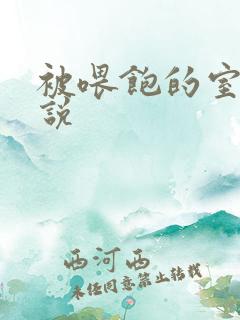 被喂飽的室
說
西河西
未经同意禁止转载